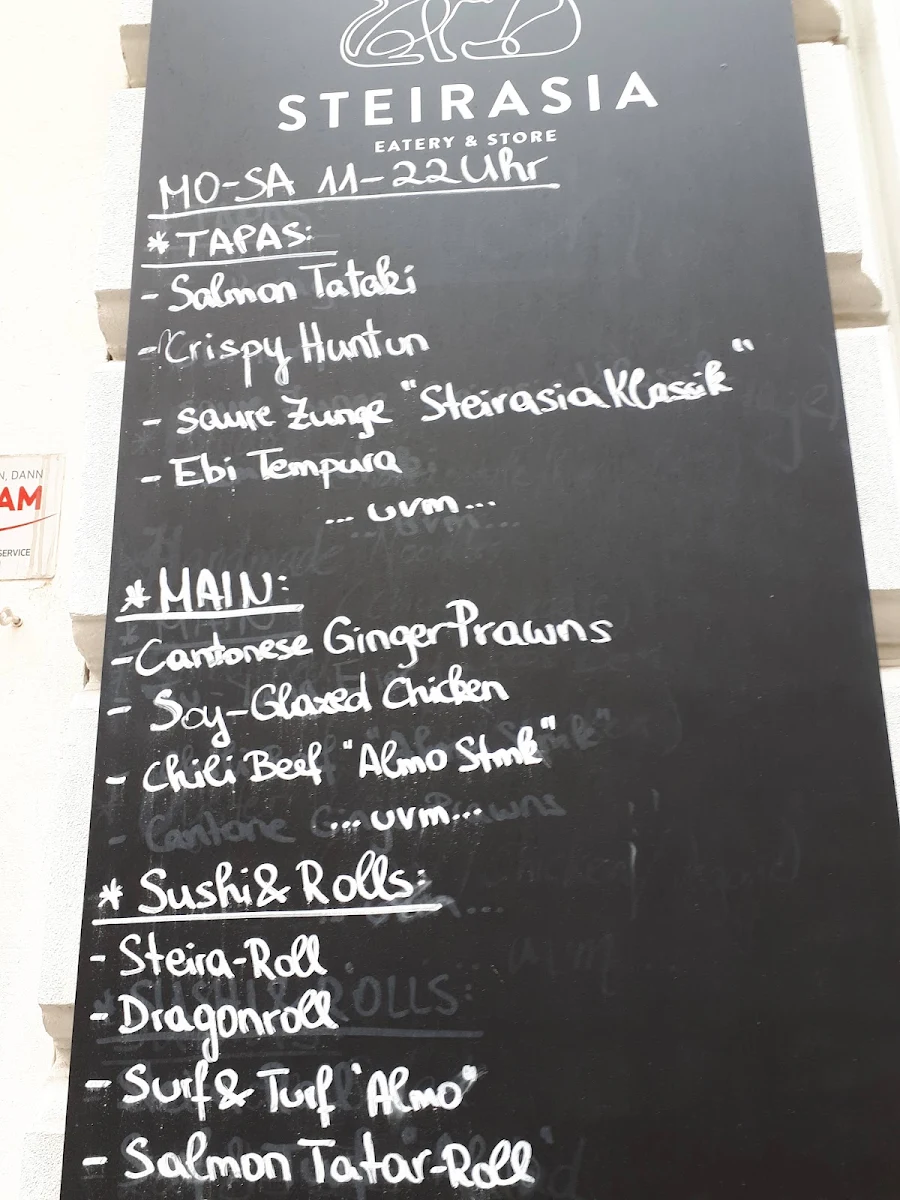 STEIRASIA
EATERY & STORE
MO-SA 11-22 Uhr
* TAPAS:
- Salmon Tataki
- Crispy Huntun
- saure Zunge "Steirasia Klassik"
- Ebi Tempura
... uvm...
* MAIN:
- Cantonese Ginger Prawns
- Soy-Glaxed Chicken
- Chili Beef "Almo Strnk"
... uvm...
* Sushi & Rolls:
- Steira-Roll
- Dragonroll
- Surf & Turf "Almo"
- Salmon Tatar-Roll
N, DANN
AM
SERVICE